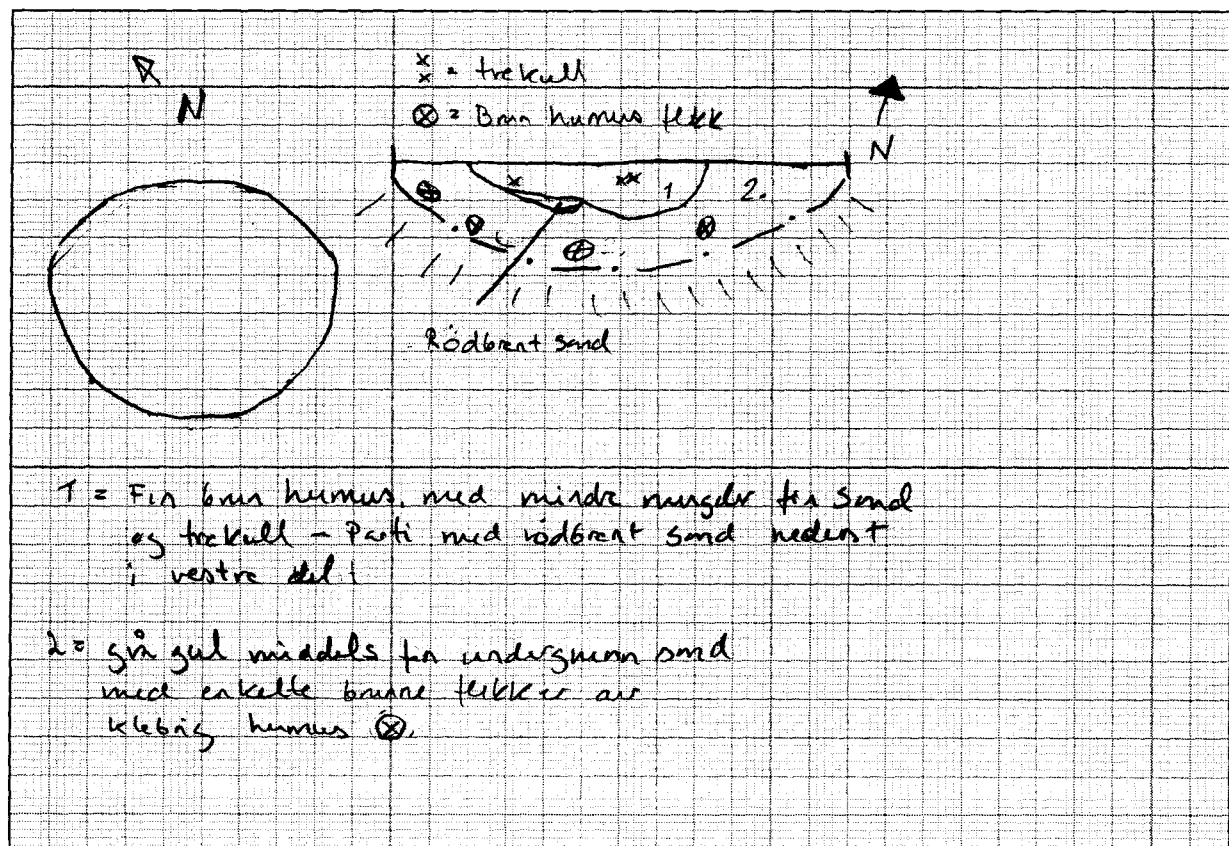 N
x x = trekull
⊗ = Brun humus flekk
N
1 2.
Rödbrent sand
1 = Fin brun humus, med mindre mengder fin sand
og trekull - Parti med rödbrent sand nederst
i vestre del
2 = grå gul middels fin undergrunn sand
med enkelte brune flekker av
klebrig humus ⊗.